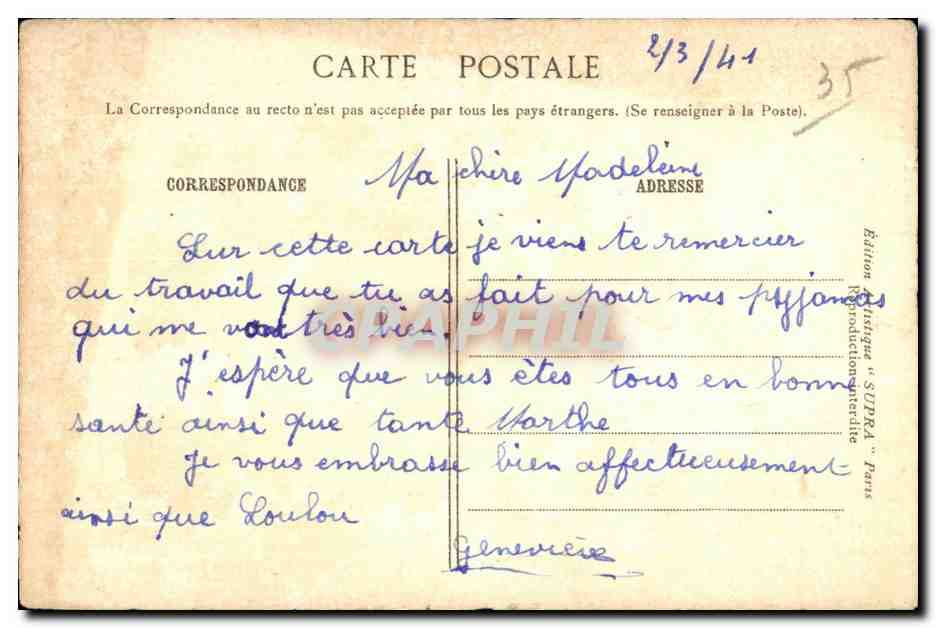 2/3/41
35
CARTE POSTALE
La Correspondance au recto n'est pas acceptée par tous les pays étrangers. (Se renseigner à la Poste).
CORRESPONDANCE
ADRESSE
Ma chère Madeleine
Sur cette carte je viens te remercier
du travail que tu as fait pour mes pyjamas
qui me vont très bien.
J'espère que vous êtes tous en bonne
santé ainsi que tante Marthe
Je vous embrasse bien affectueusement
ainsi que Loulou
Geneviève
Édition Artistique "SUPRA" Paris
Reproduction interdite
CPAPHIL